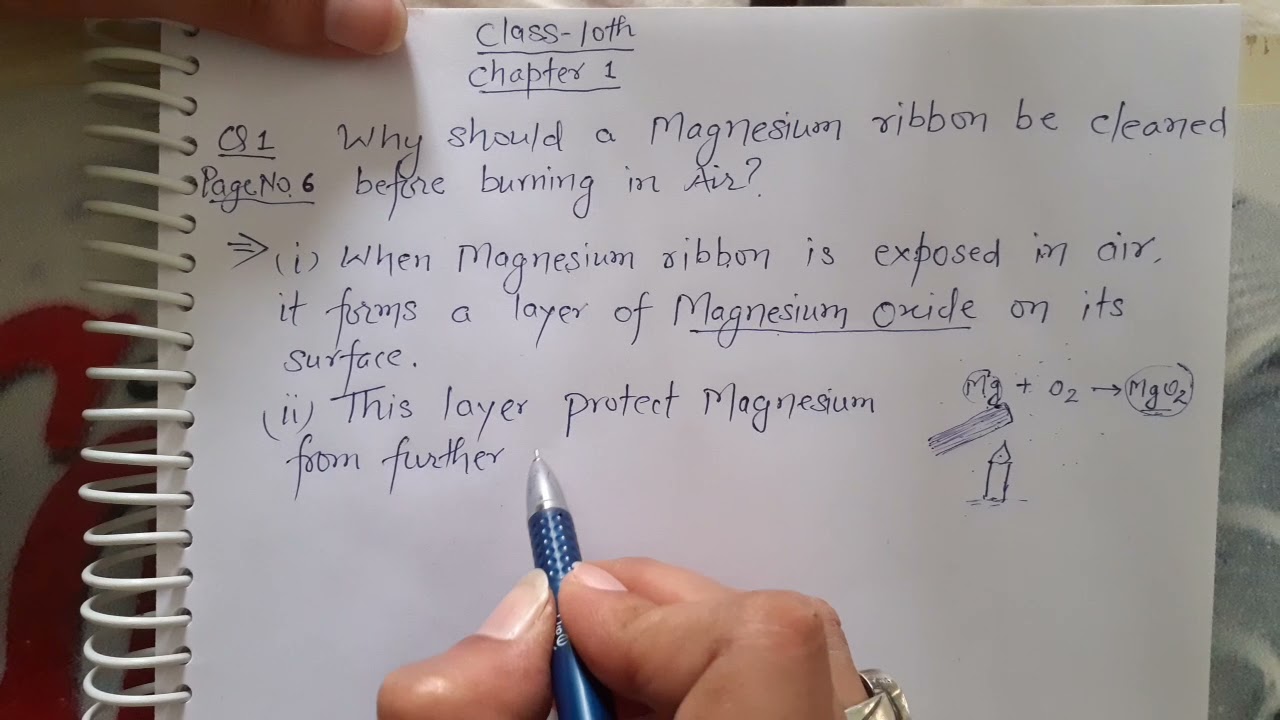 Class-10th
Chapter 1
Q1 Why should a Magnesium ribbon be cleaned
Page No. 6 before burning in Air?
⇒ (i) When Magnesium ribbon is exposed in air,
it forms a layer of Magnesium Oxide on its
surface.
Mg + O₂ → MgO₂
(ii) This layer protect Magnesium
from further